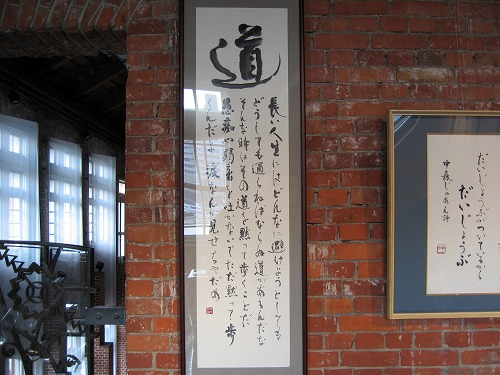 道
長い人生にはどんなに避けようとしても
どうしても通らねばならぬ道があるんだな
そんな時はその道を黙って歩くことだ
愚痴や弱音を吐かないでただ黙って歩
くんだよ涙なんか見せちゃだめ
だいじょうぶがついているから
だいじょうぶ